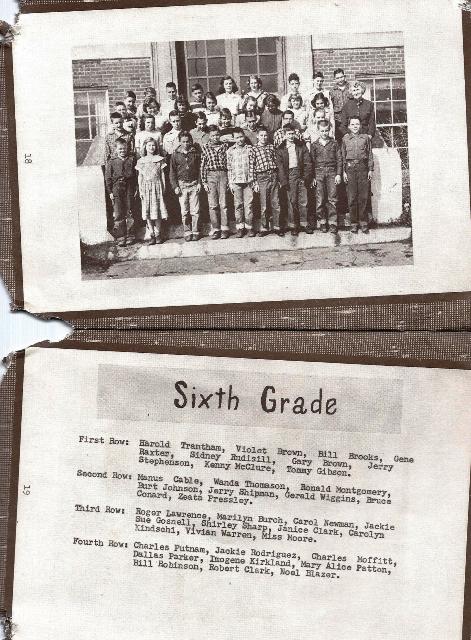 18
Sixth Grade
First Row: Harold Trantham, Violet Brown, Bill Brooks, Gene
Raxter, Sidney Rudisill, Gary Brown, Jerry
Stephenson, Kenny McClure, Tommy Gibson.
Second Row: Manus Cable, Wanda Thomason, Ronald Montgomery,
Burt Johnson, Jerry Shipman, Gerald Wiggins, Bruce
Conard, Zeata Pressley.
Third Row: Roger Lawrence, Marilyn Burch, Carol Newman, Jackie
Sue Gosnell, Shirley Sharp, Janice Clark, Carolyn
Kindschi, Vivian Warren, Miss Moore.
Fourth Row: Charles Putnam, Jackie Rodriguez, Charles Moffitt,
Dallas Parker, Imogene Kirkland, Mary Alice Patton,
Bill Robinson, Robert Clark, Noel Blazer.
19